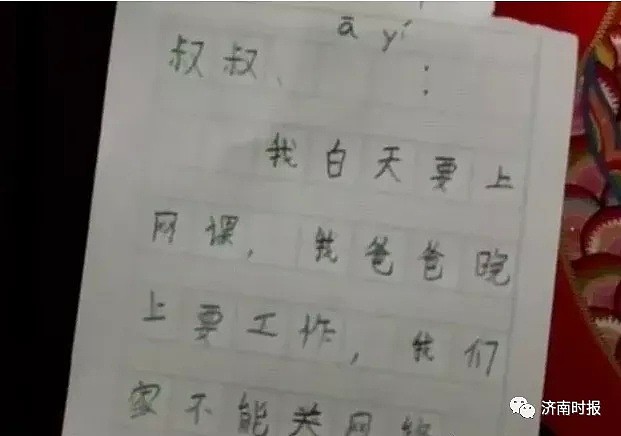 ā yí
叔叔、 :
我白天要上
网课，我爸爸晚
上要工作，我们
家不能关网络
济南时报